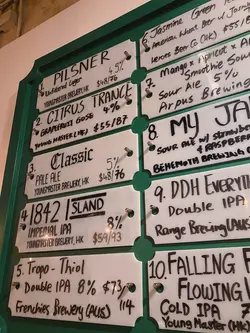 1 PILSNER 4.5%
Unfiltered Lager
YOUNGMASTER BREWERY, HK $48/76
2 CITRUS TRANCE
GRAPEFRUIT GOSE 4%
YOUNG MASTER (HK) $55/87
3 Classic 5%
PALE ALE
YOUNGMASTER BREWERY, HK $48/76
4 1842 ISLAND
IMPERIAL IPA 8%
YOUNGMASTER BREWERY, HK $59/93
5. Tropo-Thiol
Double IPA 8% $73/
Frenchies Brewery (AUS) 114
6 Jasmine Green
American Wheat Beer w/ Jasmine
7 Mango x Apricot x
Smoothie Sour
Sour Ale 5%
Arpus Brewing
8. MY JA
SOUR ALE w/ STRAW
& RASPBE
BEHEMOTH BREWING
9. DDH EVERY
Double IPA
Range Brewing (Aus)
10. FALLING F
FLOWING
COLD IPA
Young Master